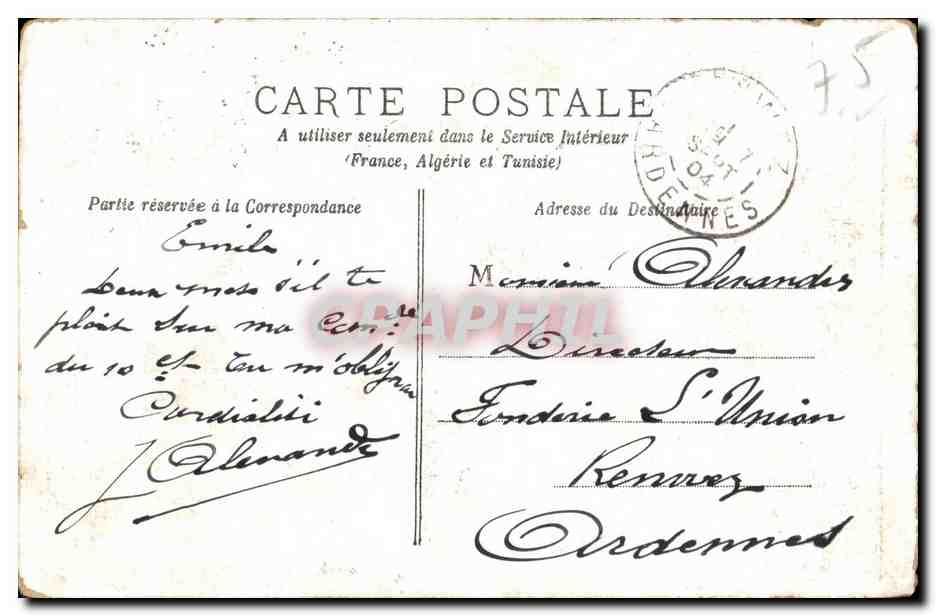 75
CARTE POSTALE
A utiliser seulement dans le Service Intérieur
(France, Algérie et Tunisie)
SEPT
04
ARDENNES
Partie réservée à la Correspondance
Adresse du Destinataire
Emile
Deux mots s'il te
plait sur ma
du 10 et tu m'obligeras
Cordialité
J Alexandre
Monsieur Alexandre
Directeur
Fonderie L'Union
Renwez
Ardennes
CPAPHIL